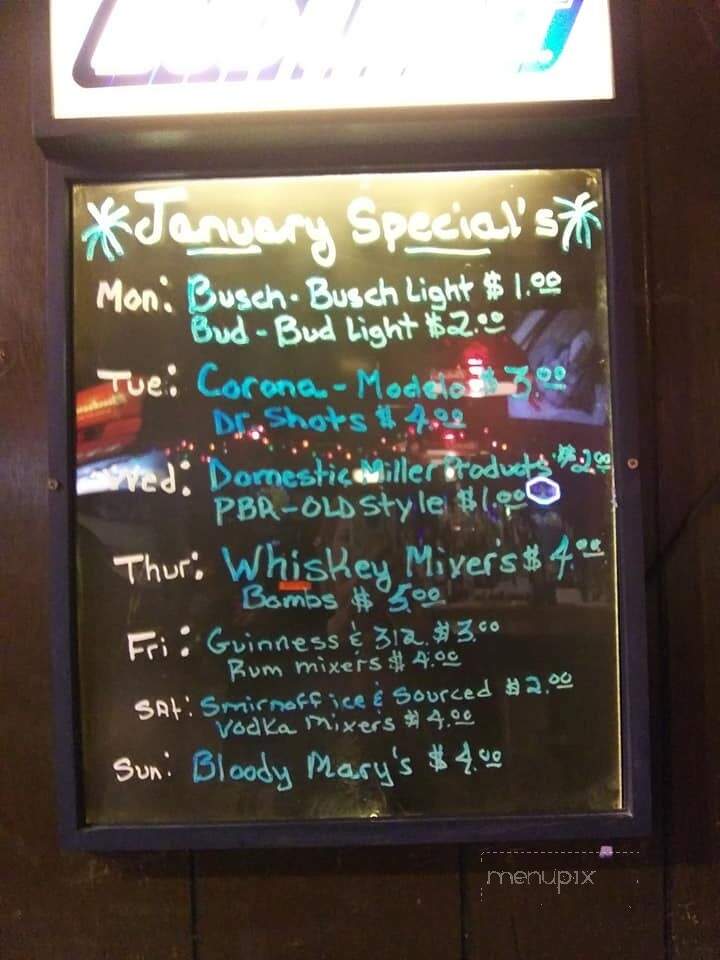 January Special's
Mon: Busch - Busch Light $1.00
Bud - Bud Light $2.00
Tue: Corona - Modelo $3.00
Dr. Shots $4.00
Wed: Domestic Miller Products $2.00
PBR - OLD Style $1.00
Thur: Whiskey Mixer's $4.00
Bombs $5.00
Fri: Guinness & 312 $3.00
Rum mixers $4.00
SAt: Smirnoff ice & Sourced $2.00
Vodka Mixers $4.00
Sun: Bloody Mary's $4.00
menupix